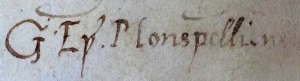 G. Ep̃. Monspellien